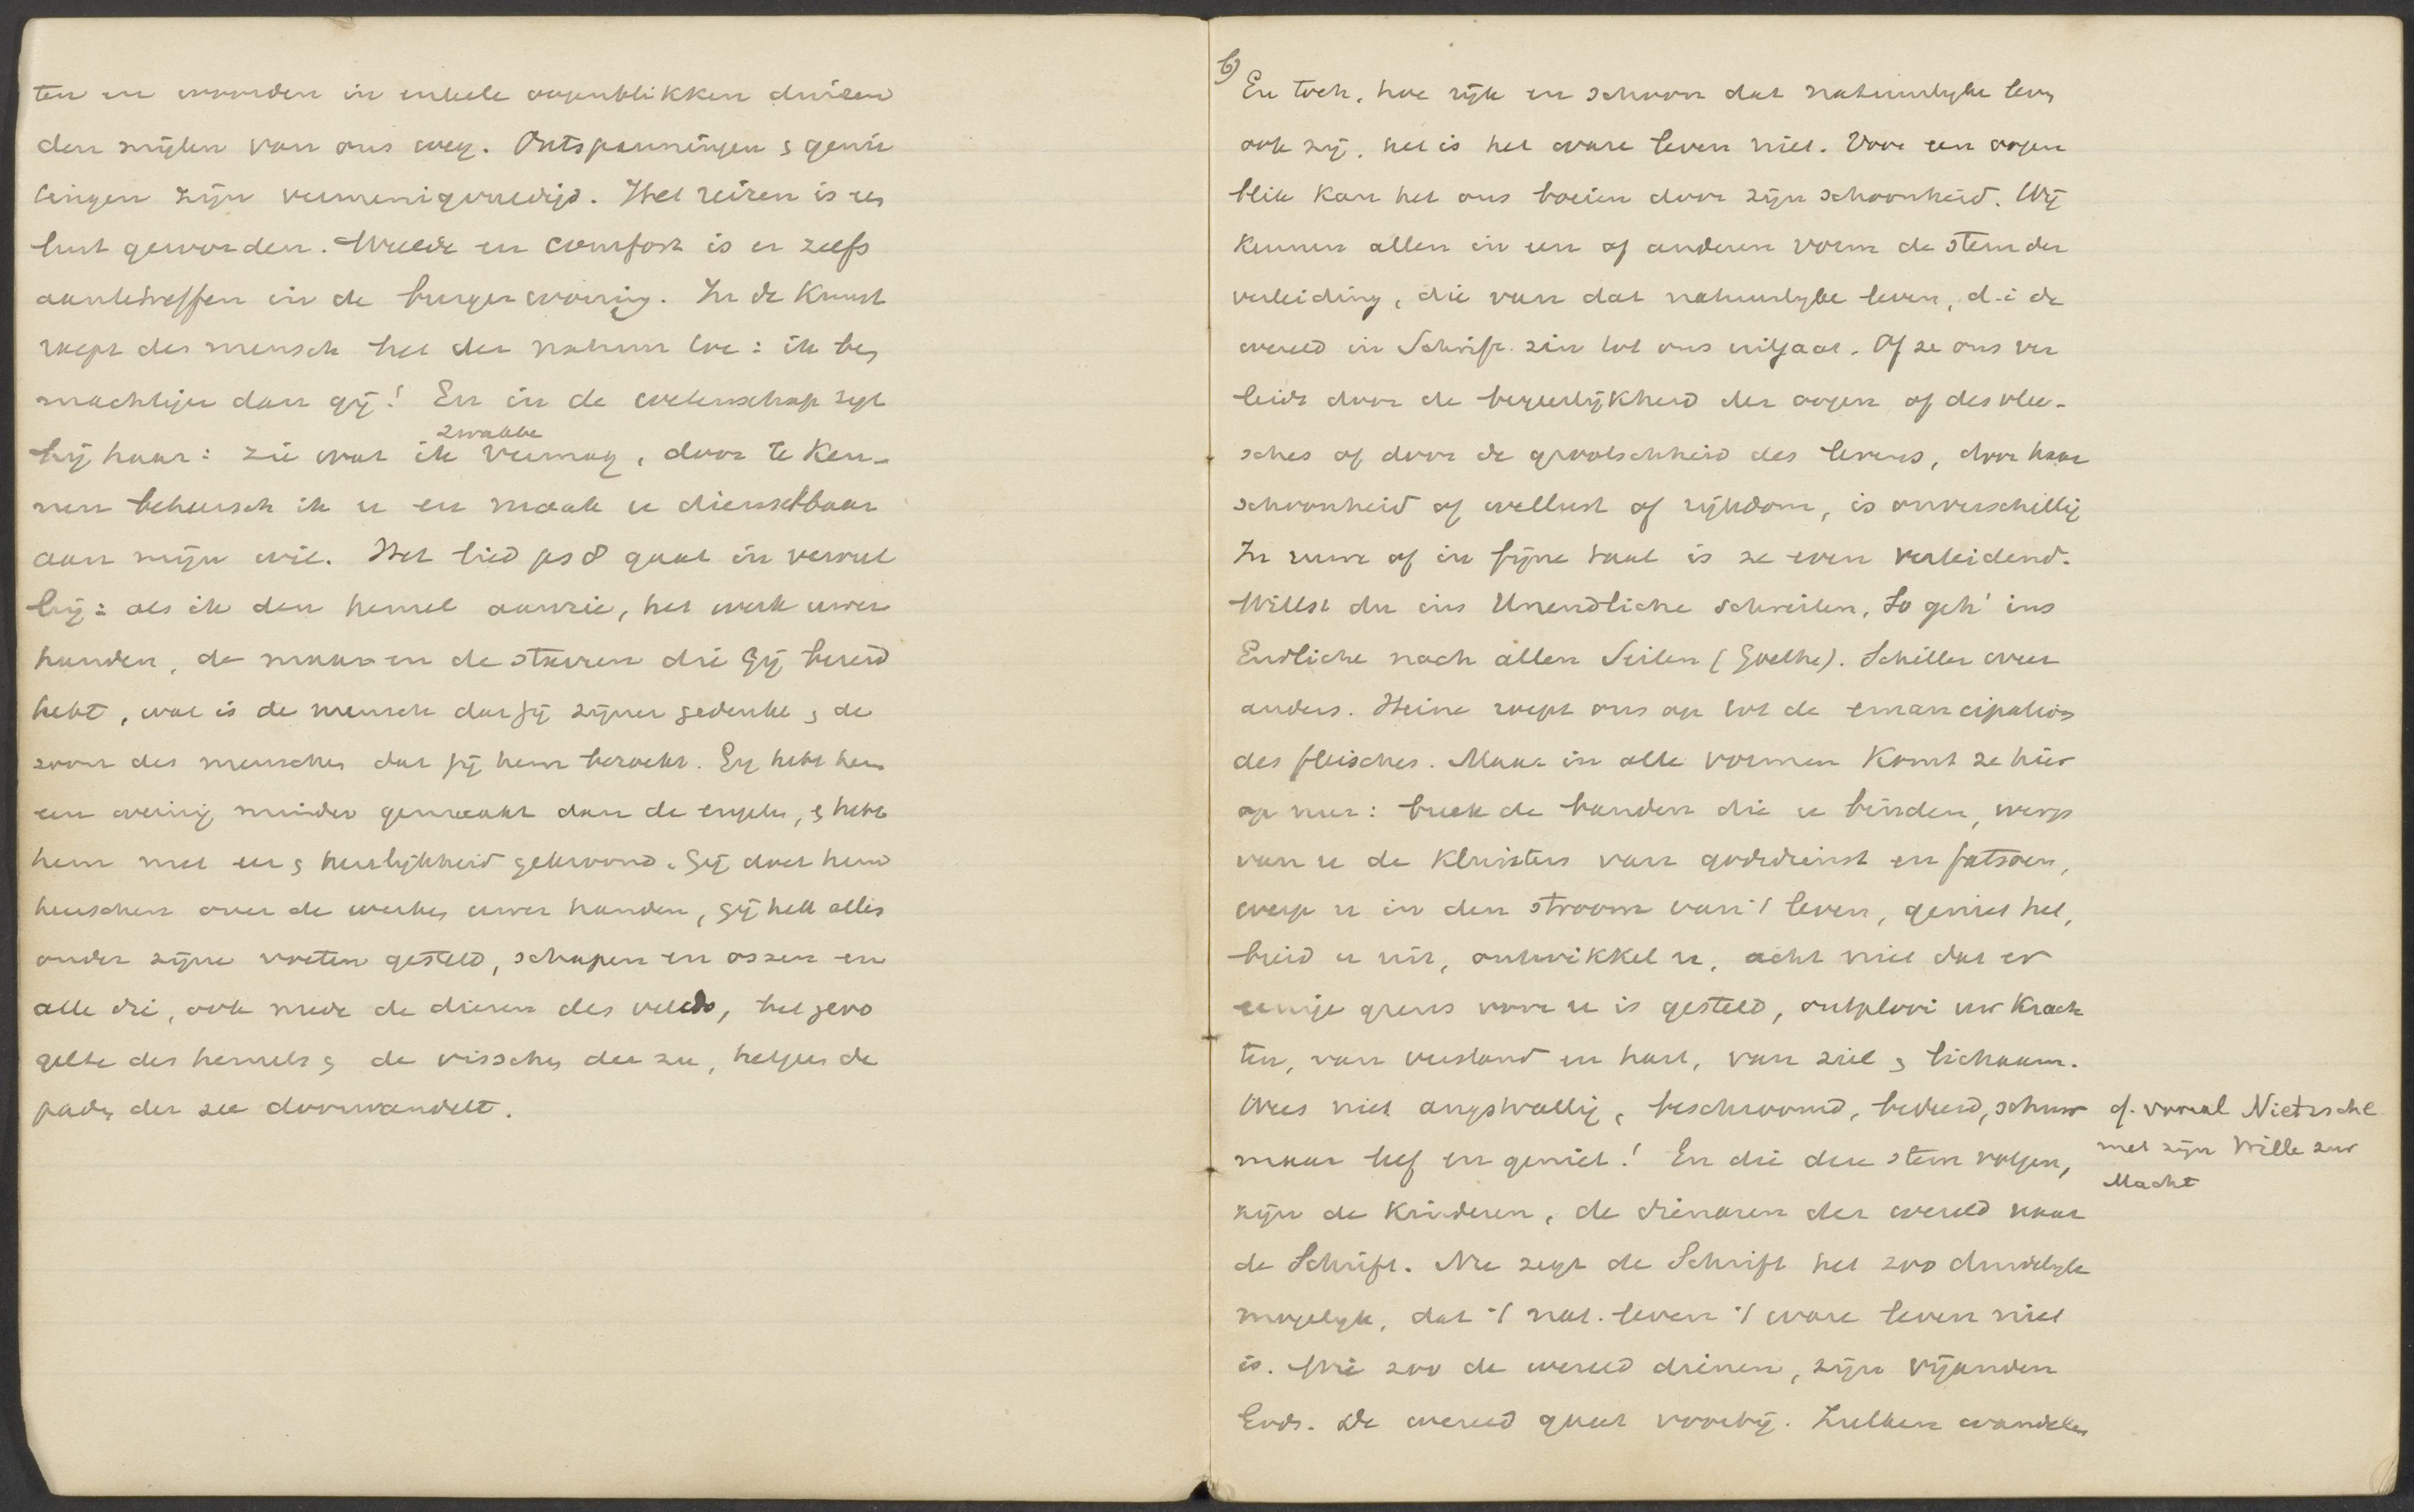 ten en woorden in enkele oogenblikken duizen
den mijlen van ons weg. Ontspanningen & genie
tingen zijn vermenigvuldigd. Het reizen is een
lust geworden. Weelde en comfort is er zelfs
aantetreffen in de burgerwoning. In de Kunst
roept des mensch het der natuur toe: ik ben
machtiger dan gij! En in de wetenschap zegt
zwakke
hij haar: zie wat ik vermag, door te Ken-
nen beheersch ik u en maak u dienstbaar
aan mijn wil. Het lied ps 8 gaat in vervul
ling: als ik den hemel aanzie, het werk uwer
handen, de maan en de sterren die Gij bereid
hebt, wat is de mensch dat gij zijner gedenkt & de
zoon des menschen dat gij hem bezoekt. Gij hebt hem
een weinig minder gemaakt dan de engelen, & hebt
hem met eer & heerlijkheid gekroond. Gij doet hem
heerschen over de werken uwer handen, gij hebt alles
onder zijne voeten gesteld, schapen en ossen en
alle die, ook mede de dieren des velds, het gevo
gelte des hemels & de visschen der zee, hetgeen de
paden der zee doorwandelt.
6)
En toch, hoe rijk en schoon dat natuurlijke leven
ook zij, het is het ware leven niet. Voor een oogen
blik kan het ons boeien door zijn schoonheid. Wij
kennen allen in een of anderen vorm de stem der
verleiding, die van dat natuurlyke leven, d.i de
wereld in Schrift. zin tot ons uitgaat. Of ze ons ver
leidt door de begeerlijkheid der oogen of des vlee-
sches of door de grootschheid des levens, door haar
schoonheid of wellust of rijkdom, is onverschillig
In ruwe of in fijne taal is ze even verleidend.
Willst du ins Unendliche schreiten, So geh' ins
Endliche nach allen Seiten (Goethe). Schiller weer
anders. Heine roept ons op tot de emancipation
des fleisches. Maar in alle vormen komt ze hier
op neer: breek de banden die u binden, werp
van u de kluisters van godsdienst en fatsoen,
werp u in den stroom van 't leven, geniet het,
breid u uit, ontwikkel u, acht niet dat er
eenige grens voor u is gesteld, ontplooi uw krach
ten, van verstand en hart, van ziel & lichaam.
Wees niet angstvallig, beschroomd, bedeesd, schuw
maar leef en geniet! En die deze stem volgen,
zijn de kinderen, de dienaren der wereld naar
de Schrift. Nu zegt de Schrift het zoo duidelyk
mogelyk, dat 't nat. leven 't ware leven niet
is. Wie zoo de wereld dienen, zijn vijanden
Gods. De wereld gaat voorbij. Zulken wandelen
cf. vooral Nietzsche
met zijn Wille zur
Macht